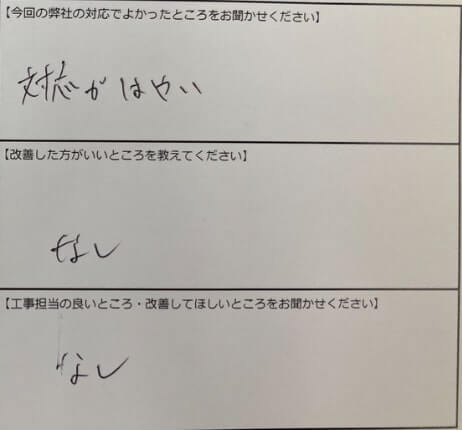 【今回の弊社の対応でよかったところをお聞かせください】
対応がはやい
【改善した方がいいところを教えてください】
なし
【工事担当の良いところ・改善してほしいところをお聞かせください】
なし